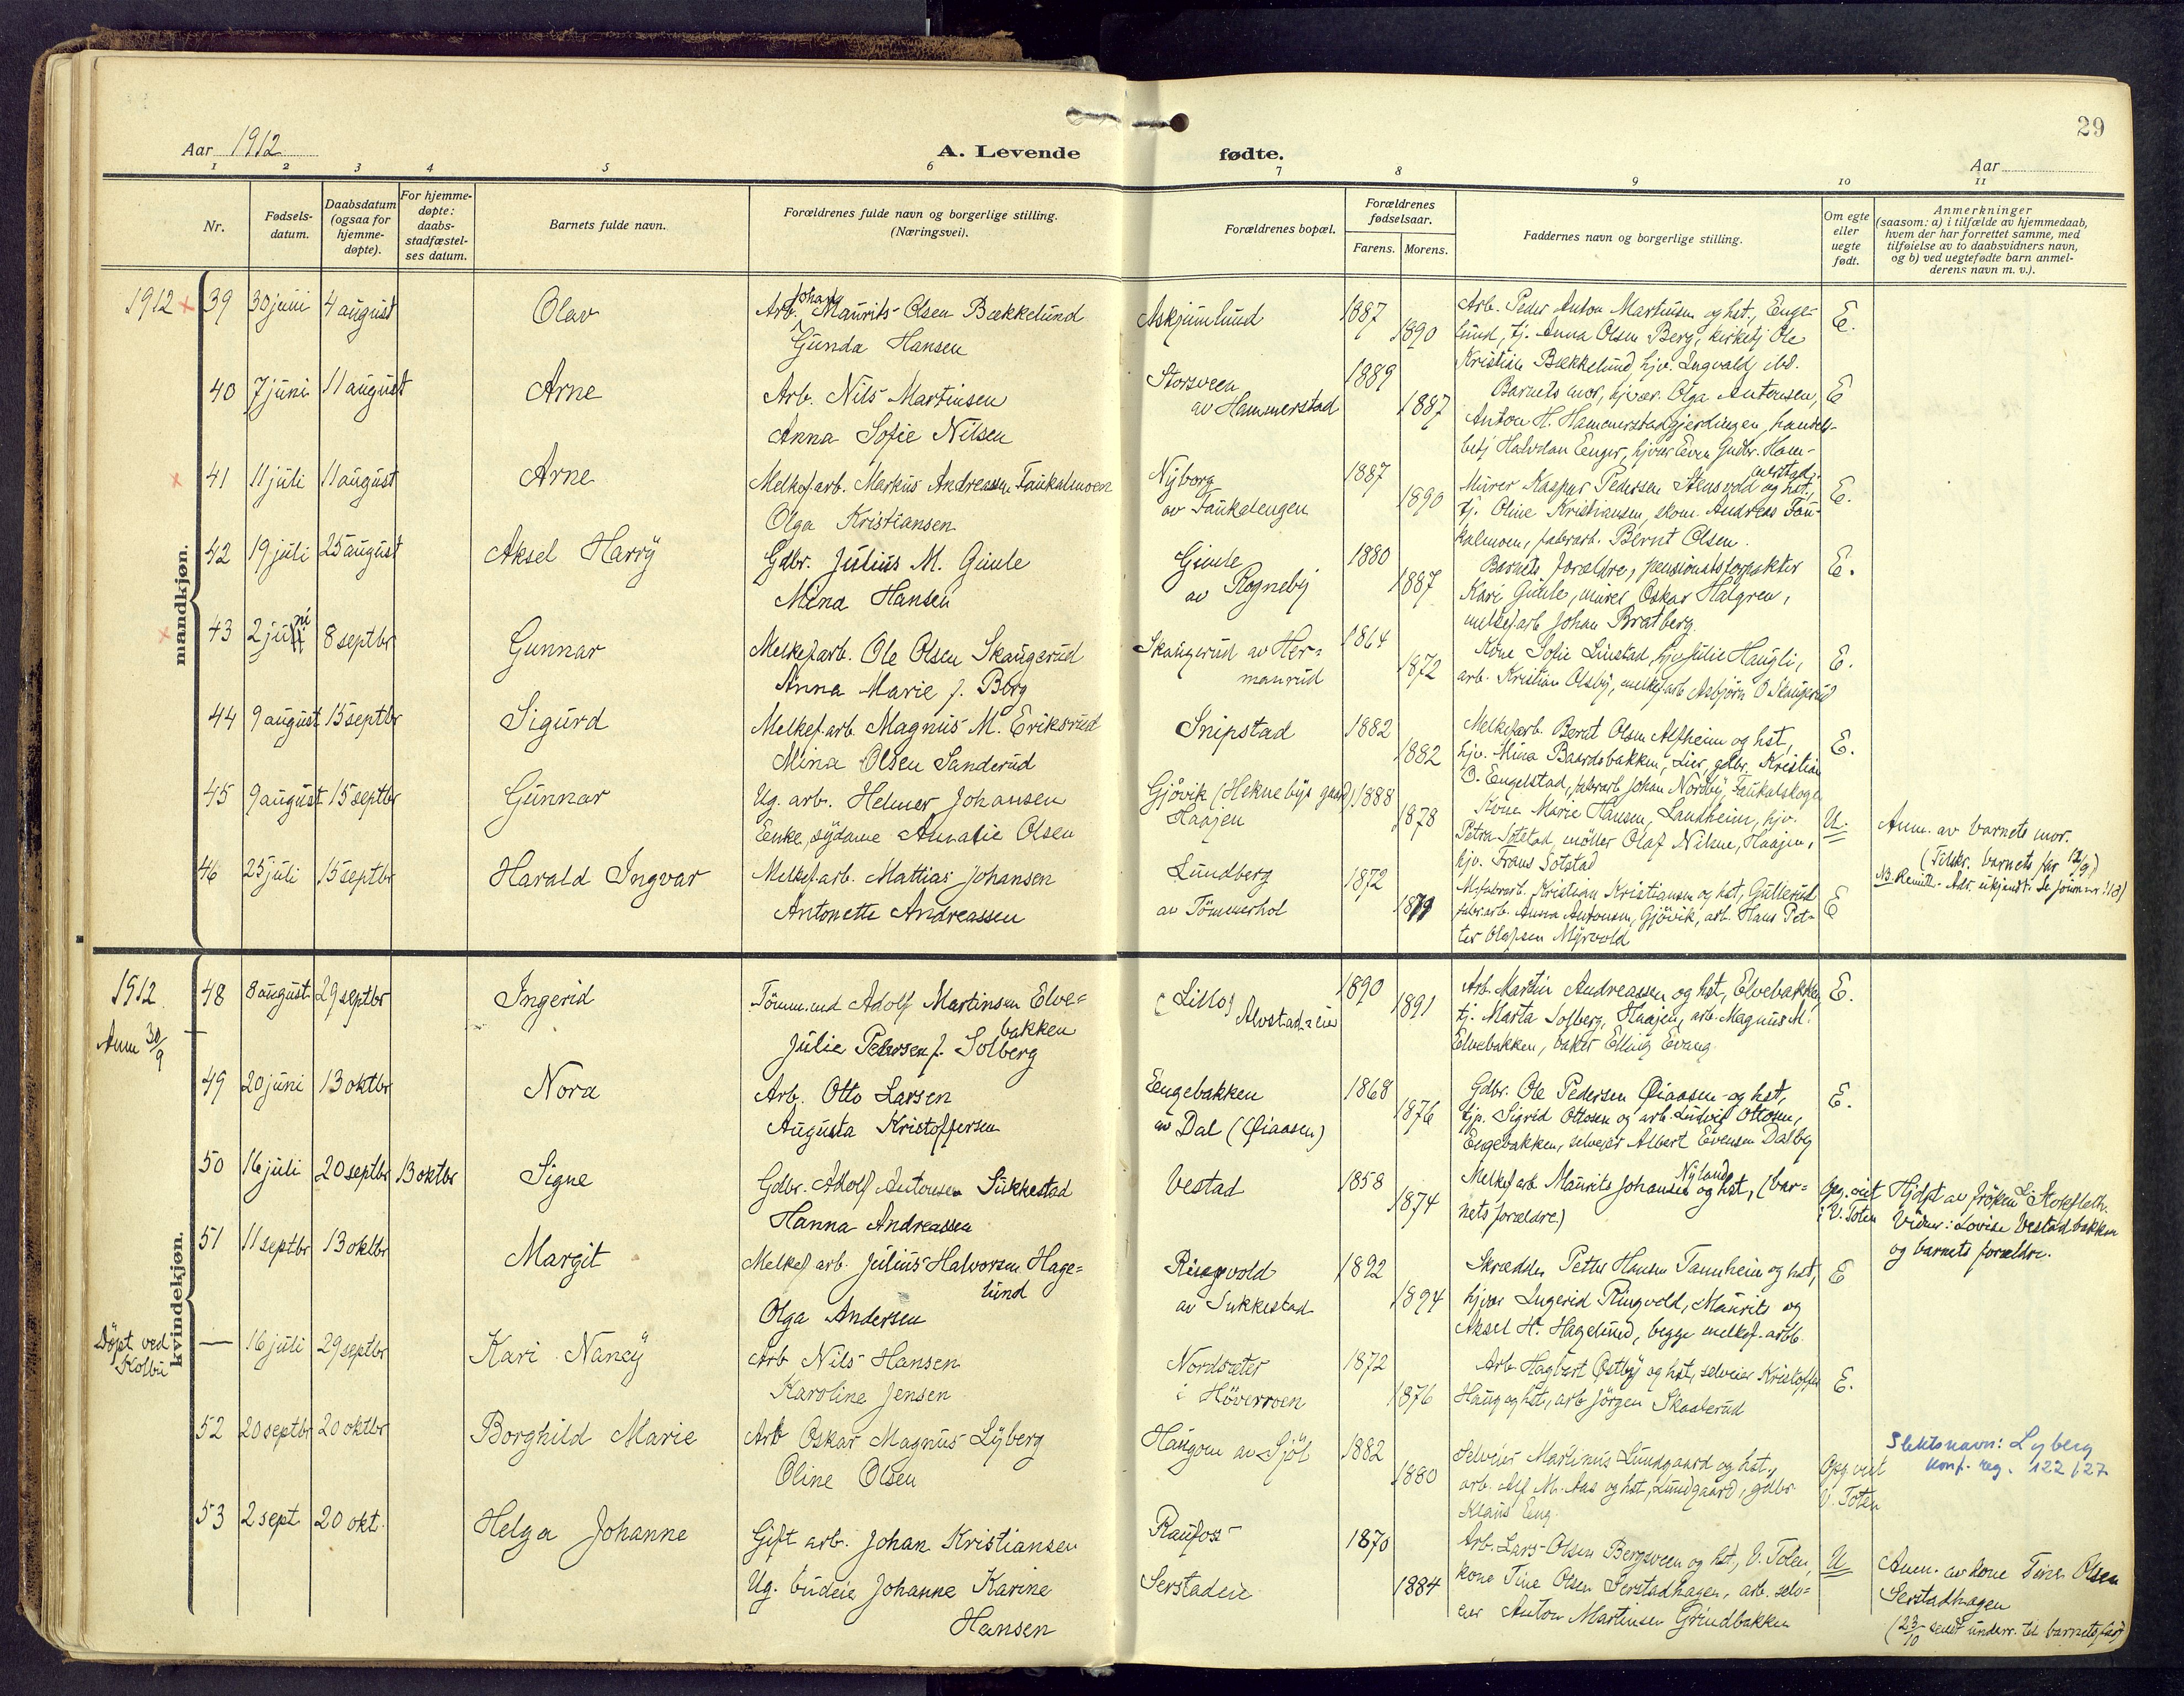 29
Aar 1912
A. Levende
fødte.
Aar
1 2 3 4 5 6 7 8 9 10 11
Nr.
Fødsels-
datum.
Daabsdatum
(ogsaa for
hjemme-
døpte).
For hjemme-
døpte:
daabs-
stadfæstel-
ses datum.
Barnets fulde navn.
Forældrenes fulde navn og borgerlige stilling.
(Næringsvei).
Forældrenes bopæl.
Forældrenes
fødselsaar.
Farens. Morens.
Faddernes navn og borgerlige stilling.
Om egte
eller
uegte
født.
Anmerkninger
(saasom: a) i tilfælde av hjemmedaab,
hvem der har forrettet samme, med
tilføielse av to daabsvidners navn,
og b) ved uegtefødte barn anmel-
derens navn m. v.).
mandkjøn.
1912 × 39 30 juni 4 august Olav
Arb. Johan Maurits Olsen Bækkelund
Gunda Hansen
Askjumlund
1887
1890
Arb. Peder Anton Martinsen og hst., Enge-
lund, tj. Anna Olsen Berg, kirketj Ole
Kristian Bækkelund, hjv. Ingvald ibd.
E.
40 7 juni 11 august Arne
Arb. Nils Martinsen
Anna Sofie Nilsen
Storsveen
av Hammerstad
1889
1887
Barnets mor, hjvær. Olga Antonsen,
Anton H. Hammerstadgjerdingen, handels-
betj Halvdan Eenger, hjvær Even Gudbr. Ham-
merstad.
E
× 41 11 juli 11 august Arne
Melkef.arb. Markus Andreassen Faukalmoen
Olga Kristiansen
Nyborg
av Faukalengen
1887
1890
Murer Kaspar Pedersen Stensvold og hst.,
tj. Oline Kristiansen, skom. Andreas Fau-
kalmoen, fabrarb. Bernt Olsen.
E.
42 19 juli 25 august Aksel Harry
Gdbr. Julius M. Gimle
Mina Hansen
Gimle
av Rogneby
1880
1887
Barnets forældre, pensionatsforpakter
Kari Gimle, murer Oskar Halgren,
melkef.arb Johan Bratberg.
E.
× 43 2 juni 8 septbr Gunnar
Melkef.arb. Ole Olsen Skaugerud
Anna Marie f. Berg
Skaugerud av Her-
manrud
1864
1872
Kone Sofie Linstad, hjv Julie Haugli,
arb. Kristian Olsby, melkef.arb Asbjørn O Skaugerud
E.
44 9 august 15 septbr Sigurd
Melkef.arb. Magnus M. Eriksrud
Mina Olsen Sanderud
Snipstad
1882
1882
Melkef.arb. Bernt Olsen Alfheim og hst,
hjv. Mina Baardsbakken, Lier, gdbr. Kristian
O. Engelstad, fabrarb. Johan Nordby, Faukalskogen
E.
45 9 august 15 septbr Gunnar
Ug. arb. Helmer Johansen
Enke, sydame Annalie Olsen
Gjøvik (Heknebys gaard)
Haajen
1888
1878
Kone Marie Hansen, Landheim, hjv.
Petra Sotstad, møller Olaf Nilsen, Haajen,
hjv. Frans Sotstad
U.
Anm. av barnets mor.
(Tilskr. barnets far 12/9.)
NB. Remitt. Adr. ukjendt. Se journ nr. 113)
46 25 juli 15 septbr Harald Ingvar
Melkef.arb. Mattias Johansen
Antonette Andreassen
Lundberg
av Tömmerhol
1872
1879
M.fabrarb. Kristian Kristiansen og hst, Gullerud
fabr.arb. Anna Antonsen, Gjøvik, arb. Hans Pet-
ter Olafsen Myrvold
E
kvindekjøn.
1912
Anm 30/9
48 8 august 29 septbr Ingerid
Tömm.md Adolf Martinsen Elve=
bakken
Julie Pedersen f. Solberg
(Lillo)
Alvstad eie
1890
1891
Arb. Martin Andreassen og hst, Elvebakken
tj. Marta Solberg, Haajen, arb. Magnus M.
Elvebakken, baker Elling Evang.
E.
49 20 juni 13 oktbr Nora
Arb. Otto Larsen
Augusta Kristoffersen
Eengebakken
av Dal (Øiaasen)
1868
1876
Gdbr. Ole Pedersen Øiaasen og hst,
tjp. Sigrid Ottosen og arb. Ludvig Ottosen,
Engebakken, selveier Albert Evensen Dalby
E.
50 16 juli 20 septbr 13 oktbr Signe
Gdbr. Adolf Antonsen Sukkestad
Hanna Andreassen
Vestad
1858
1874
Melkef arb Maurits Johansen Nyland og hst, (bar=
nets forældre)
Opg. eivt
i V. Toten
Hjdpt av frøken L. Stokfleth.
Vidner: Lovise Vestadbakken
og barnets forældre.
51 11 septbr 13 oktbr Margit
Melkef arb. Julius Halvorsen Hage=
lund
Olga Andersen
Ringvold
av Sukkestad
1892
1894
Skrædder Petter Hansen Tannheim og hst,
hjvær Ingerid Ringvold, Maurits og
Aksel H. Hagelund, begge melkef.arbb.
E
Döpt ved
Kolbu
— 16 juli 29 septbr Kari Nancy
Arb Nils Hansen
Karoline Jensen
Nordsæter
i Höverroen
1872
1876
Arb Hagbart Østby og hst, selveier Kristoffer
Haug og hst, arb Jörgen Skaaterud
E.
52 20 septbr 20 oktbr Borghild Marie
Arb Oskar Magnus Lyberg
Oline Olsen
Haugom av Sjöl
1882
1880
Selveier Martinus Lundgaard og hst,
arb. Alf M. Aas og hst, Lundgaard, gdbr.
Klaus Eng.
V. Toten
Slektsnavn: Lyberg
Konf. reg. 122/27
53 2 sept 20 okt. Helga Johanne
Gift arb. Johan Kristiansen
Ug. budeie Johanne Karine
Hansen
Raufoss
Serstadeie
1870
1884
Arb. Lars Olsen Bergsveen og hst, V. Toten,
kone Tine Olsen Serstadhagen, arb. selv=
eier Anton Martinsen Grindbakken
U
Anm. av kone Tine Olsen
Serstadhagen
(23/10 sendt underr. til barnets far)